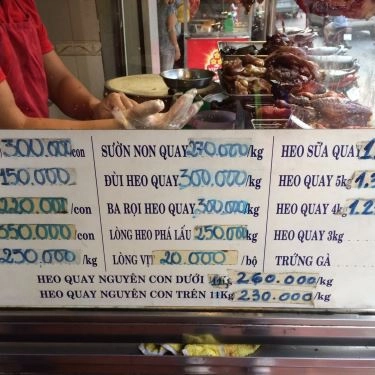 300.000/con
150.000
220.000/con
550.000/con
250.000/kg
SƯỜN NON QUAY 270.000/kg
ĐÙI HEO QUAY 300.000/kg
BA RỌI HEO QUAY 300.000/kg
LÒNG HEO PHÁ LẤU 250.000/kg
LÒNG VỊT 20.000/bộ
HEO SỮA QUAY 1.
HEO QUAY 5kg 1.3
HEO QUAY 4kg 1.2
HEO QUAY 3kg
TRỨNG GÀ
HEO QUAY NGUYÊN CON DƯỚI 11Kg 260.000/kg
HEO QUAY NGUYÊN CON TRÊN 11Kg 230.000/kg